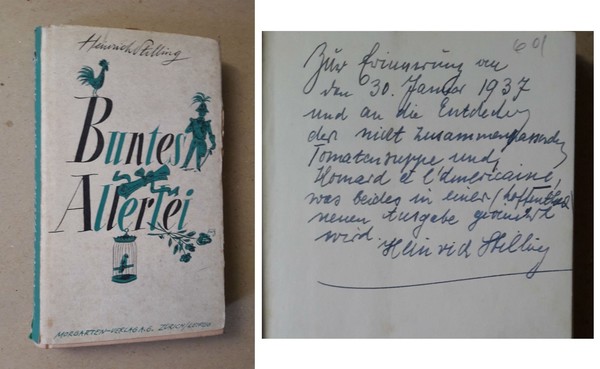 Heinrich Stilling
Buntes
Allerlei
MORGARTEN-VERLAG A.G. ZÜRICH/LEIPZIG
60/
Zur Erinnerung an
den 30. Januar 1937
und an die Entdeckung
der nicht zusammenpassenden
Tomatensuppe und
Homard à l'américaine,
was beides in einer (hoffentlich)
neuen Ausgabe geändert
wird. Heinrich Stilling